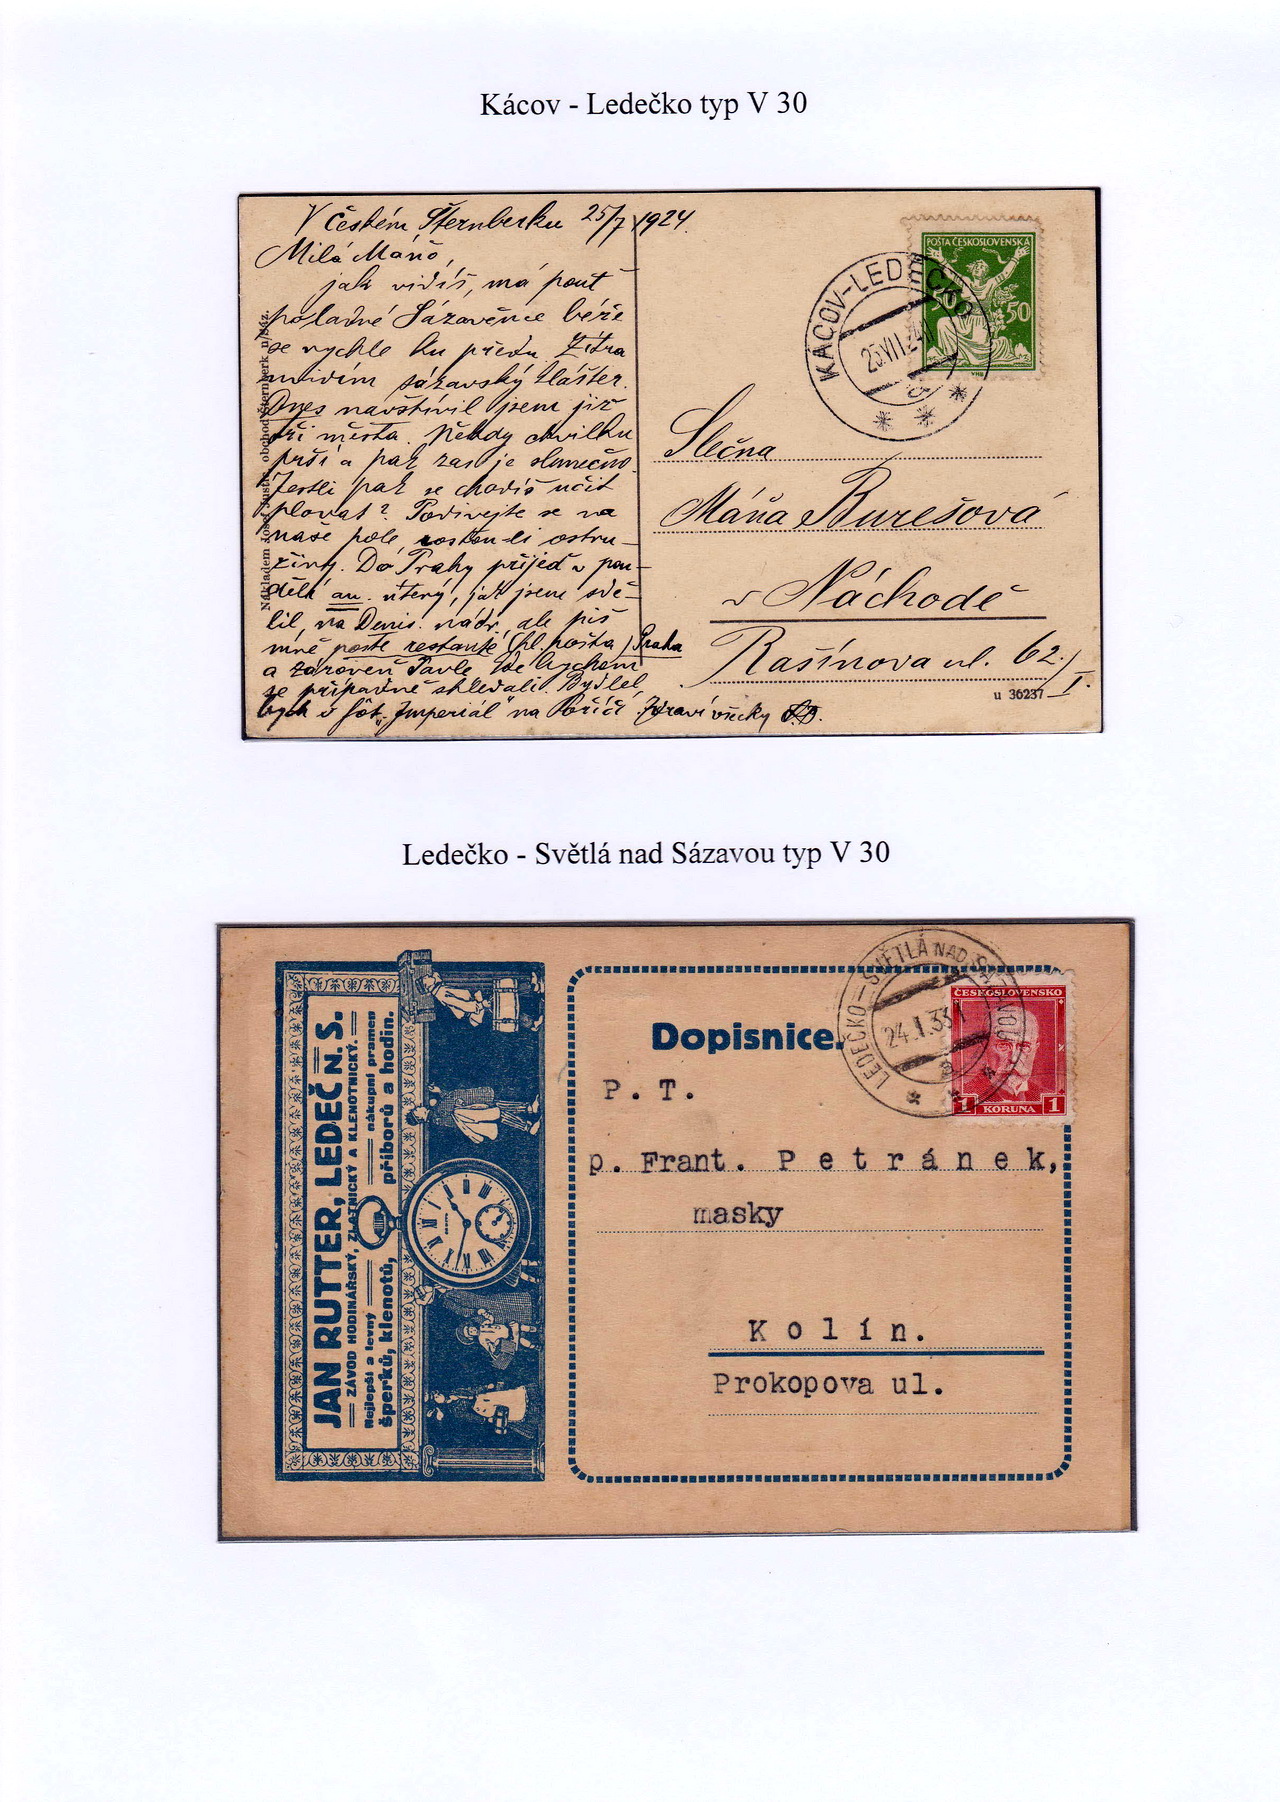 Kácov - Ledečko typ V 30
V Českém Šternberku 25/7 1924.
Milá Máňo,
jak vidíš, má pouť
poladné Sázavěnce béře
se rychle ku předu. Zítra
uvidím sázavský klášter.
Dnes navštívil jsem již
tři města. Někdy chvilku
prší a pak zas je slunečno.
Jestli pak se chodíš učit
plovat? Podívejte se na
naše pole, rostou-li ostru-
žiny. Do Prahy přijeď v pon-
dělí an. úterý, jak jsem sdě-
lil, na Denis. nádr., ale piš
mně poste restante (hl. pošta) Praha
a zároveň Pavle, kde bychom
se případně shledali. Bydlel
bych v hôt. "Imperiál" na Poříčí. Zdraví všecky
Nákladem Josef obchod Šternberk n/Sáz.
POŠTA ČESKOSLOVENSKÁ
50 50
KÁCOV-LEDEČKO
25.VII.24
Slečna
Máňa Burešová
v Náchodě
Rašínova ul. 62./I.
u 36237
Ledečko - Světlá nad Sázavou typ V 30
JAN RUTTER, LEDEČ N. S.
ZÁVOD HODINÁŘSKÝ, ZLATNICKÝ A KLENOTNICKÝ.
Nejlepší a levný nákupní pramen
šperků, klenotů, příborů a hodin.
Dopisnice.
LEDEČKO-SVĚTLÁ NAD SÁZAVOU
24.I.33
ČESKOSLOVENSKO
1 KORUNA 1
P. T.
p. Frant. Petránek,
masky
Kolín.
Prokopova ul.